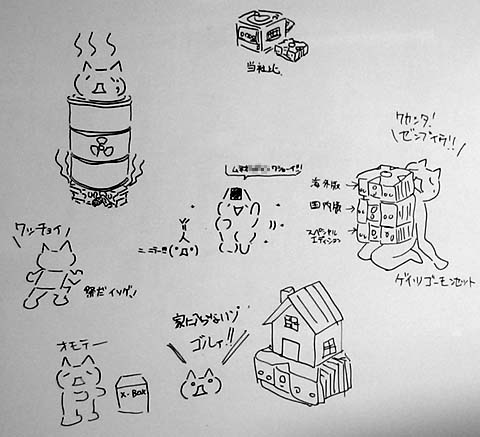 当社比
ワカンタ!
ゼンブイウ!!
海外版→
国内版→
スペシャル
エディション→
ゲイツゴーモンセット
ワッチョイ
祭だイソゲ!
オモテー
X-BOX
家に入らないゾ
ゴルァ!!